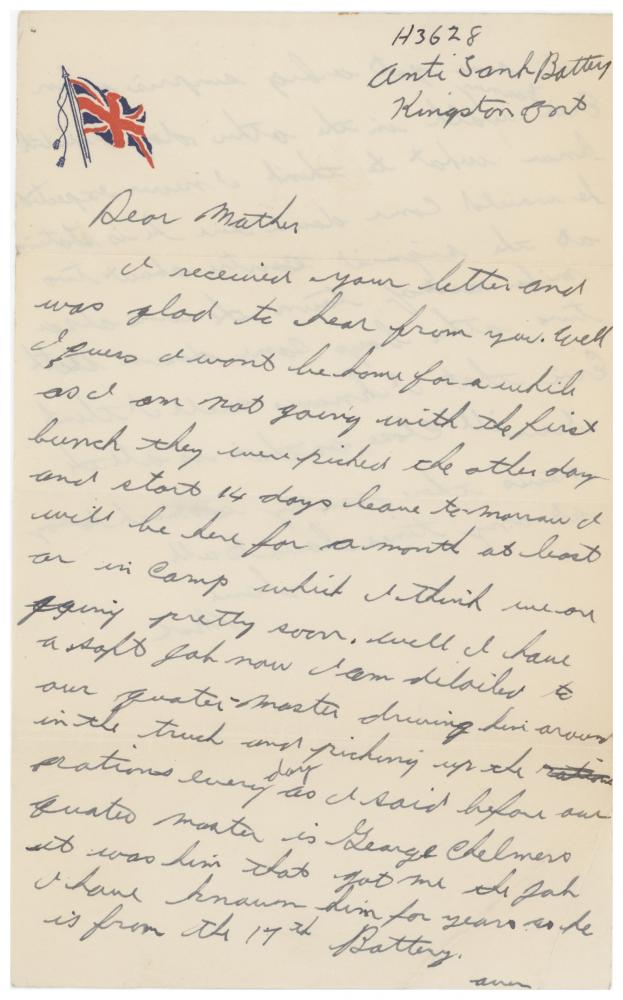 H3628
Anti Tank Battery
Kingston Ont
Dear Mother
I received your letter and
was glad to hear from you. Well
I guess I wont be home for a while
as I am not going with the first
bunch they were picked the other day
and start 14 days leave to-morrow I
will be here for a month at least
or in Camp which I think we are
going pretty soon. well I have
a soft job now I am ditailed to
our quater-master driving him around
in the truck and picking up the rations
rations every day as I said before our
quater master is George Chelmers
it was him that got me the job
I have known him for years as he
is from the 17th Battery.
over